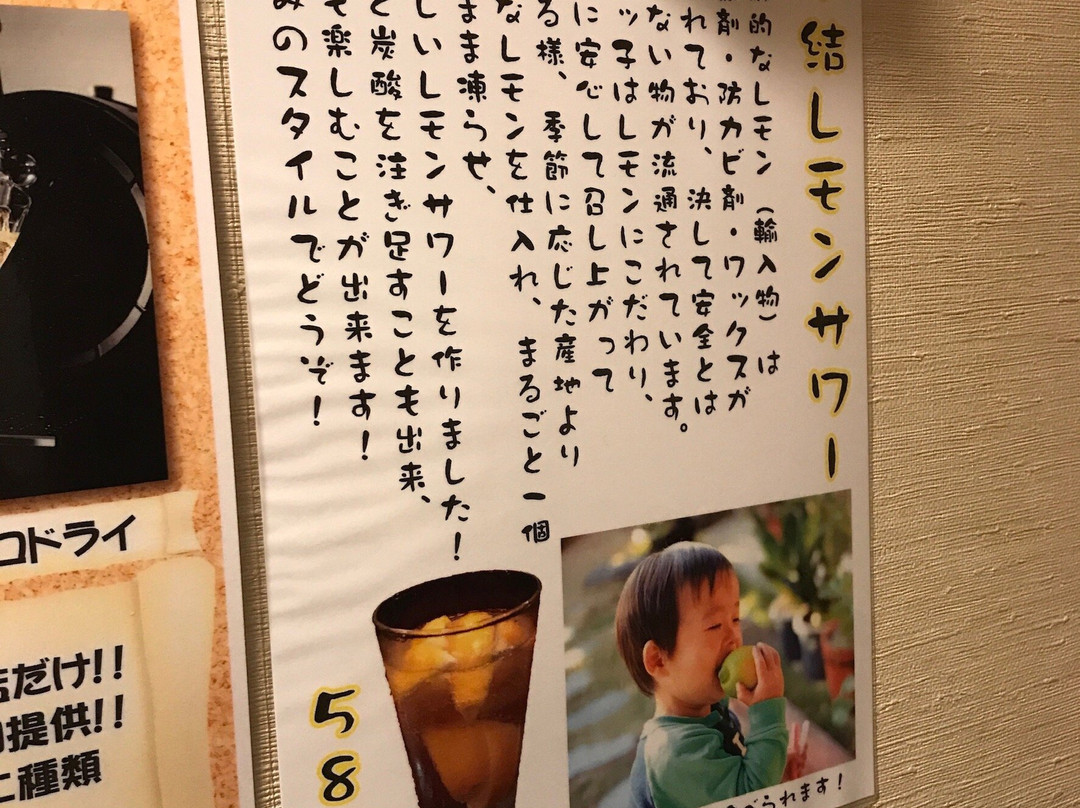 結レモンサワー
的なレモン（輸入物）は
剤・防カビ剤・ワックスが
れており、決して安全とは
ない物が流通されています。
ッ子はレモンにこだわり、
に安心して召し上がって
る様、季節に応じた産地より
なレモンを仕入れ、まるごと一個
まま凍らせ、
しいレモンサワーを作りました！
と炭酸を注ぎ足すことも出来、
も楽しむことが出来ます！
みのスタイルでどうぞ！
58
べられます！
コドライ
だけ!!
提供!!
種類